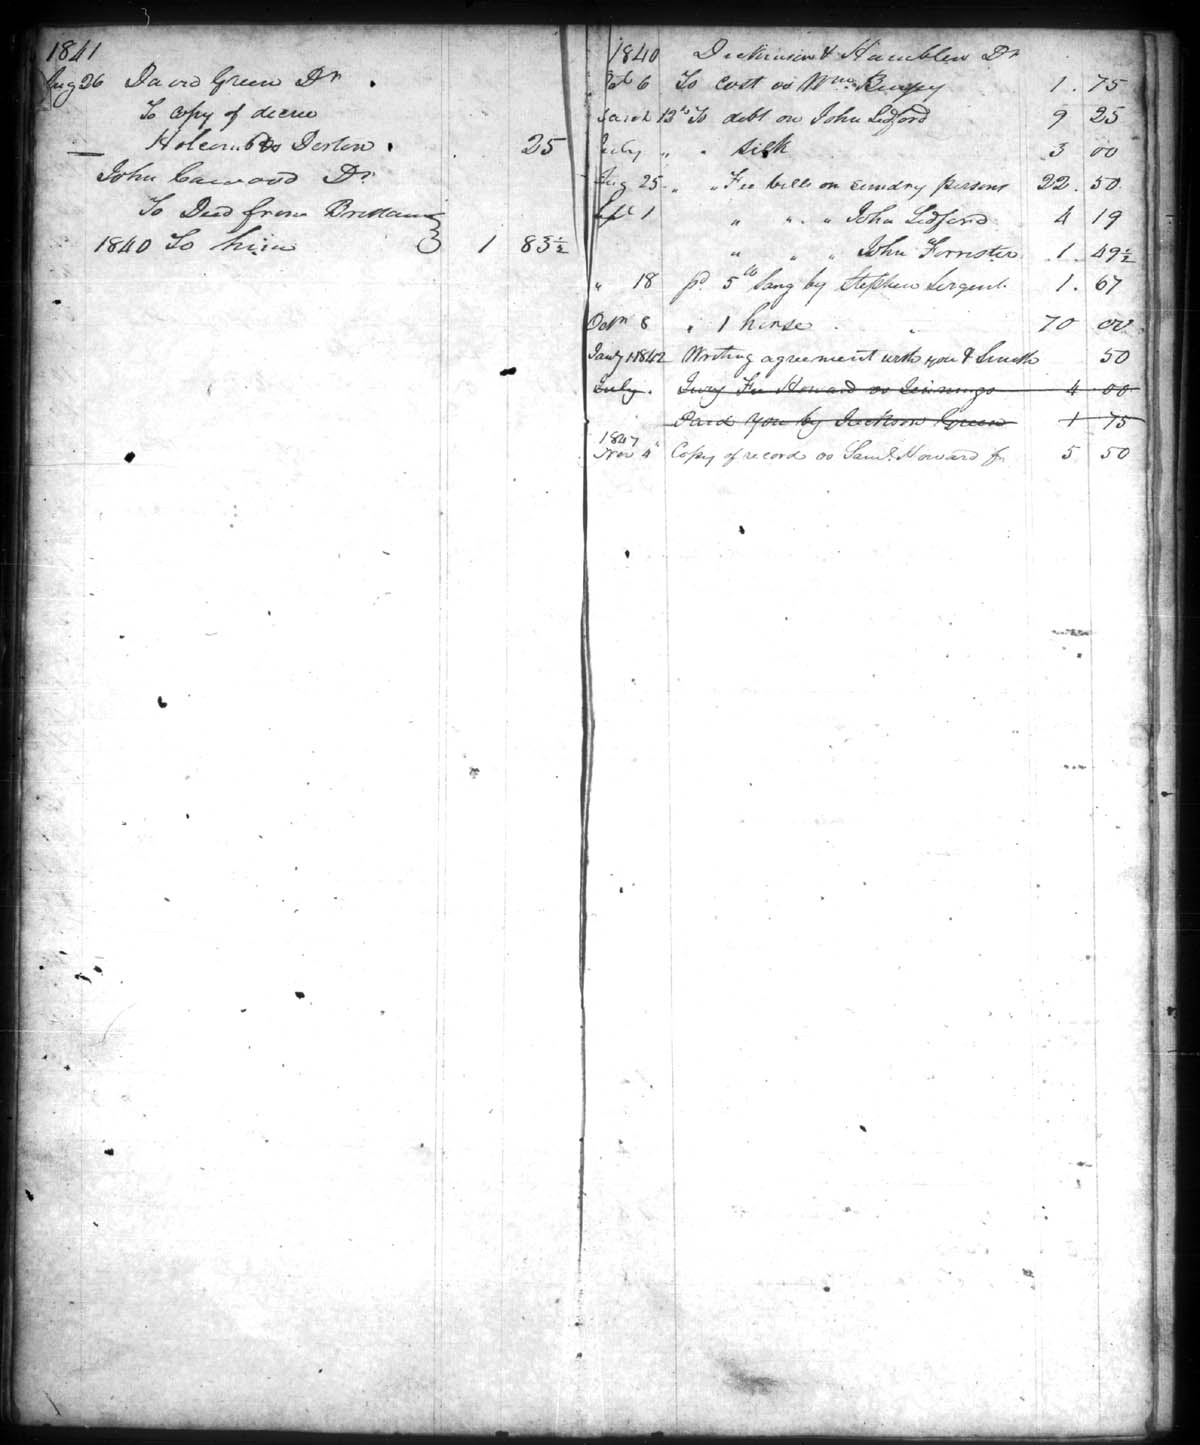 1841
Aug 26 David Green Dr
To copy of decree
Holcomb vs 25
John Cawood Dr
To Deed from
1840 To him 1 83½
1840 Dickinson & Hamblen Dr
Feb 6 To cost vs Wm 1.75
March 12th To debt on John Ledford 9 25
July " " silk 3 00
Aug 25 " " Fee bills on sundry persons 22.50
Sept 1 " " " John Ledford 4 19
" " " John Forrister 1.49½
" 18 pd 5 lb Sang by Stephen Sergent 1.67
Octr 8 " 1 horse 70 00
Jany 1842 Writing agreement with you & Smith 50
July. Jury Fee Howard vs Jennings 4 00
Paid you by Jackson Green 1 75
1847
Nov 4 Copy of record vs Saml. Howard jr 5 50